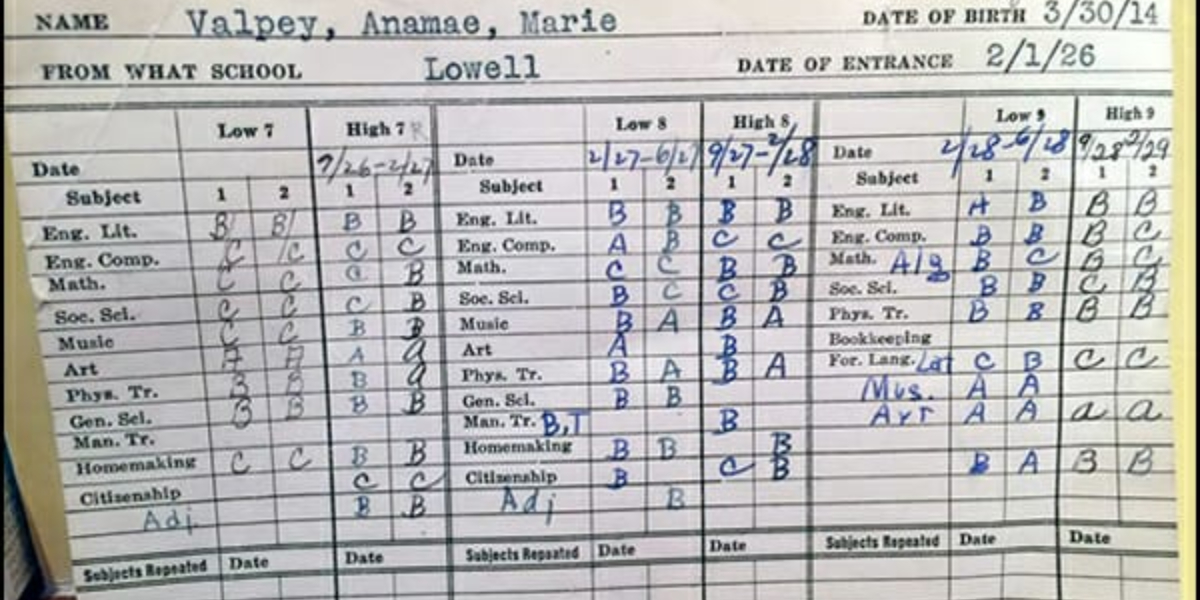 NAME Valpey, Anamae, Marie DATE OF BIRTH 3/30/14
FROM WHAT SCHOOL Lowell DATE OF ENTRANCE 2/1/26
Low 7 High 7 R Low 8 High 8 Low 9 High 9
Date 9/26-2/27 Date 2/27-6/27 9/27-2/28 Date 2/28-6/28 9/28 2/29
Subject 1 2 1 2 Subject 1 2 1 2 Subject 1 2 1 2
Eng. Lit. B B B B Eng. Lit. B B B B Eng. Lit. A B B B
Eng. Comp. C C C C Eng. Comp. A B C C Eng. Comp. B B B C
Math. C C C B Math. C C B B Math. Alg B C B C
Soc. Sci. C C C B Soc. Sci. B C C B Soc. Sci. B B C B
Music C C B B Music B A B A Phys. Tr. B B B B
Art A A A a Art A B Bookkeeping
Phys. Tr. B B B a Phys. Tr. B A B A For. Lang. Lat C B C C
Gen. Sci. B B B B Gen. Sci. B B Mus. A A
Man. Tr. Man. Tr. B,T B Art A A a a
Homemaking C C B B Homemaking B B B
Citizenship C C Citizenship B C B B A B B
Adj. B B Adj B
Subjects Repeated Date Date Subjects Repeated Date Date Subjects Repeated Date Date